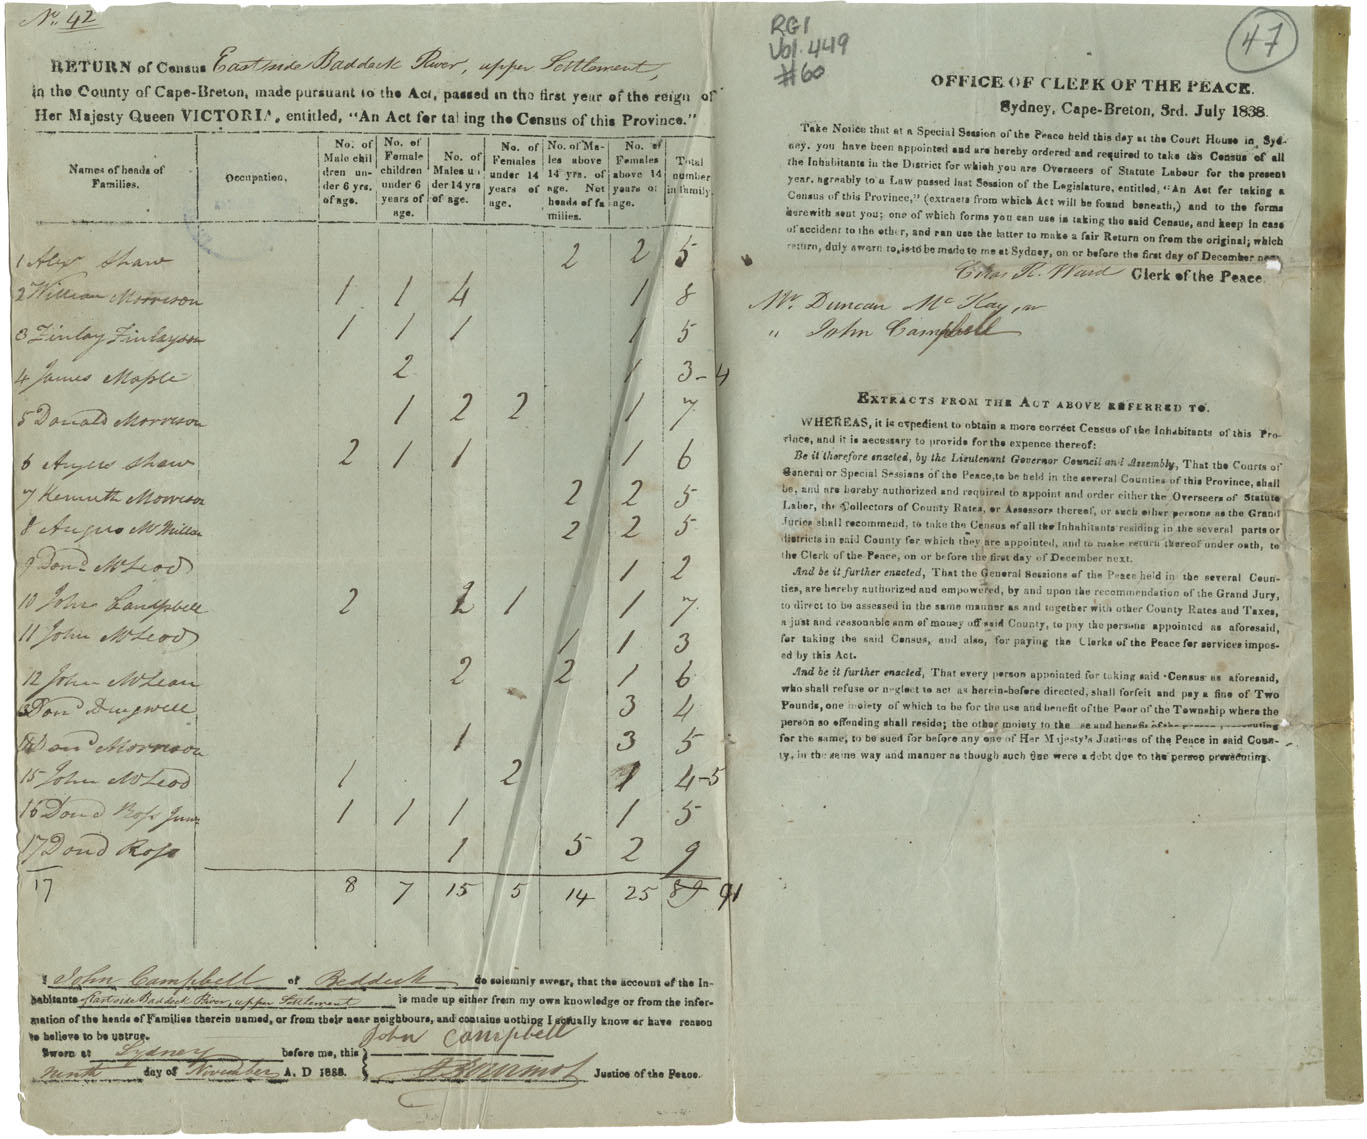 No. 42
RETURN of Census Eastside Baddeck River, upper Settlement,
in the County of Cape-Breton, made pursuant to the Act, passed in the first year of the reign of
Her Majesty Queen VICTORIA, entitled, "An Act for taking the Census of this Province."
Names of heads of Families. Occupation, No. of Male children under 6 yrs. of age. No. of Female children under 6 years of age. No. of Males under 14 yrs of age. No. of Females under 14 years of age. No. of Males above 14 yrs. of age. Not heads of families. No. of Females above 14 years of age. Total number in family.
1 Alexr Shaw 2 2 5
2 William Morrison 1 1 4 1 8
3 Finlay Finlayson 1 1 1 1 5
4 James Maple 2 1 3-4
5 Donald Morrison 1 2 2 1 7
6 Angus Shaw 2 1 1 1 6
7 Kenneth Morrison 2 2 5
8 Angus McMillan 2 2 5
9 Dond McLeod 1 2
10 John Campbell 2 2 1 1 7
11 John McLeod 1 1 3
12 John McLean 2 2 1 6
13 Dond Dingwell 3 4
14 Dond Morrison 1 3 5
15 John McLeod 1 2 1 4-5
16 Dond Ross Junr 1 1 1 1 5
17 Dond Ross 1 5 2 9
17 8 7 15 5 14 25 89 91
I John Campbell of Beddeck do solemnly swear, that the account of the In-
habitants Eastside Baddeck River, upper Settlement is made up either from my own knowledge or from the infor-
mation of the heads of Families therein named, or from their near neighbours, and contains nothing I actually know or have reason
to believe to be untrue.
John Campbell
Sworn at Sydney before me, this
ninth day of November A. D 1838. Justice of the Peace.
RG1
Vol. 449
#60
47
OFFICE OF CLERK OF THE PEACE.
Sydney, Cape-Breton, 3rd. July 1838.
Take Notice that at a Special Session of the Peace held this day at the Court House in Syd-
ney, you have been appointed and are hereby ordered and required to take the Census of all
the Inhabitants in the District for which you are Overseers of Statute Labour for the present
year, agreably to a Law passed last Session of the Legislature, entitled, "An Act for taking a
Census of this Province," (extracts from which Act will be found beneath,) and to the forms
herewith sent you; one of which forms you can use in taking the said Census, and keep in case
of accident to the other, and can use the latter to make a fair Return on from the original; which
return, duly sworn to, is to be made to me at Sydney, on or before the first day of December next
Chas R. Ward Clerk of the Peace.
Mr. Duncan McKay, or
" John Campbell
EXTRACTS FROM THE ACT ABOVE REFERRED TO.
WHEREAS, it is expedient to obtain a more correct Census of the Inhabitants of this Pro-
vince, and it is necessary to provide for the expence thereof:
Be it therefore enacted, by the Lieutenant Governor Council and Assembly, That the Courts of
General or Special Sessions of the Peace, to be held in the several Counties of this Province, shall
be, and are hereby authorized and required to appoint and order either the Overseers of Statute
Labor, the Collectors of County Rates, or Assessors thereof, or such other persons as the Grand
Juries shall recommend, to take the Census of all the Inhabitants residing in the several parts or
districts in said County for which they are appointed, and to make return thereof under oath, to
the Clerk of the Peace, on or before the first day of December next.
And be it further enacted, That the General Sessions of the Peace held in the several Coun-
ties, are hereby authorized and empowered, by and upon the recommendation of the Grand Jury,
to direct to be assessed in the same manner as and together with other County Rates and Taxes,
a just and reasonable sum of money off said County, to pay the persons appointed as aforesaid,
for taking the said Census, and also, for paying the Clerks of the Peace for services impos-
ed by this Act.
And be it further enacted, That every person appointed for taking said Census as aforesaid,
who shall refuse or neglect to act as herein-before directed, shall forfeit and pay a fine of Two
Pounds, one moiety of which to be for the use and benefit of the Poor of the Township where the
person so offending shall reside; the other moiety to the use and benefit of the person prosecuting
for the same, to be sued for before any one of Her Majesty's Justices of the Peace in said Coun-
ty, in the same way and manner as though such fine were a debt due to the person prosecuting.